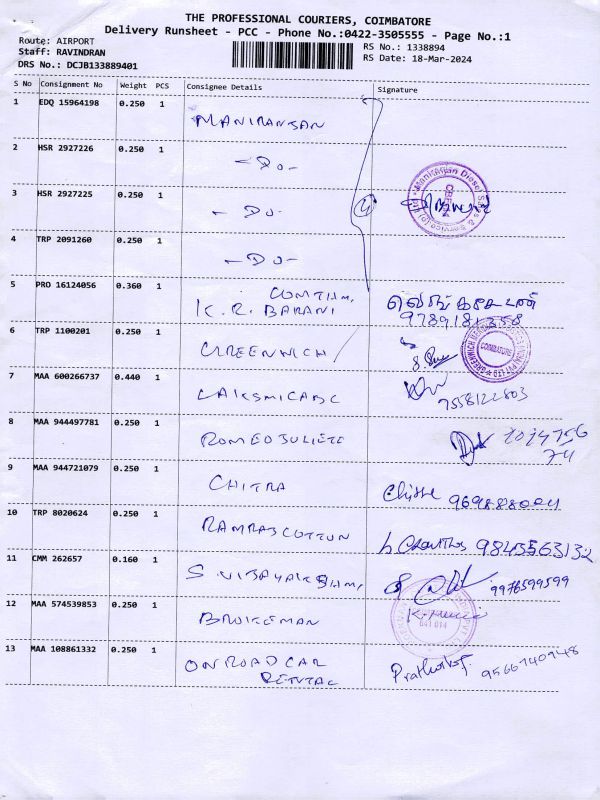 THE PROFESSIONAL COURIERS, COIMBATORE
Delivery Runsheet - PCC - Phone No.:0422-3505555 - Page No.:1
Route: AIRPORT
Staff: RAVINDRAN
DRS No.: DCJB133889401
RS No.: 1338894
RS Date: 18-Mar-2024
S No Consignment No Weight PCS Consignee Details Signature
1 EDQ 15964198 0.250 1
MANIRANJAN
2 HSR 2927226 0.250 1
-DO-
3 HSR 2927225 0.250 1
-DO-
4 TRP 2091260 0.250 1
-DO-
4
5 PRO 16124056 0.360 1
K.R. BARANI
9789181358
6 TRP 1100201 0.250 1
GREENWICH
COIMBATORE
7 MAA 600266737 0.440 1
7558122803
8 MAA 944497781 0.250 1
ROMEOJULIETE
9 MAA 944721079 0.250 1
CHITRA
10 TRP 8020624 0.250 1
RAMRAJCOTTON
9845563132
11 CMM 262657 0.160 1
9976599599
12 MAA 574539853 0.250 1
BROKEMAN
641 014
13 MAA 108861332 0.250 1
ONROAD CAR
RENTAL
9566740948